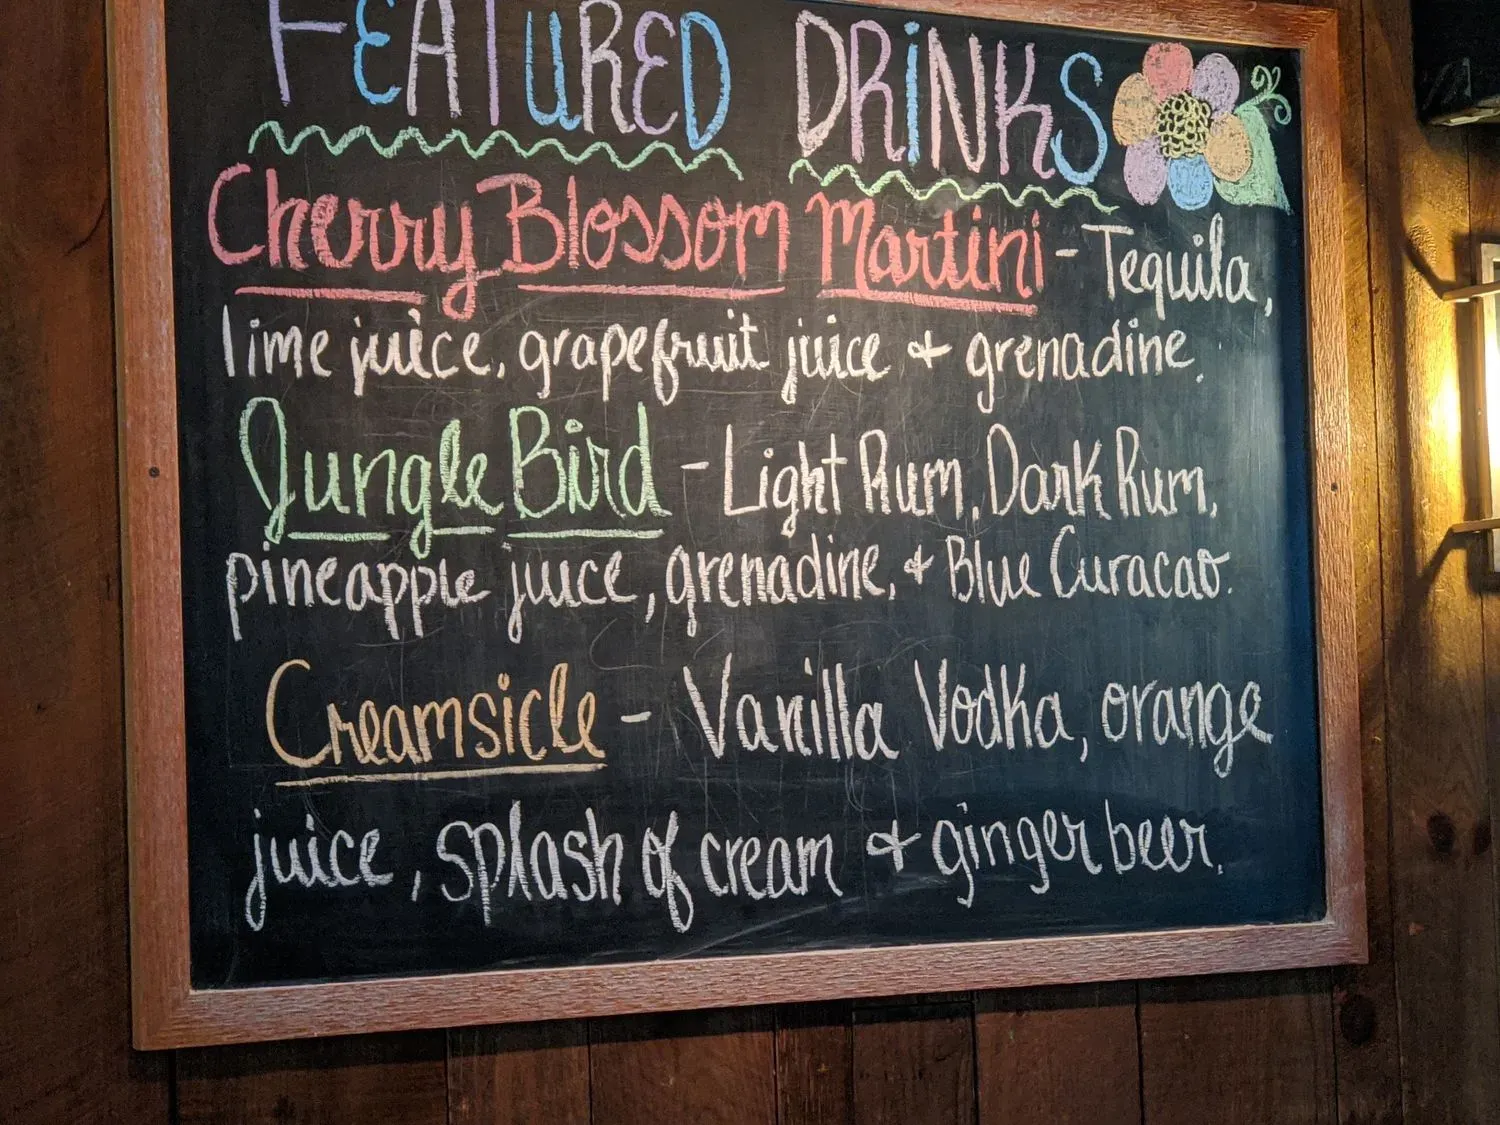 FEATURED DRINKS
Cherry Blossom Martini - Tequila,
lime juice, grapefruit juice & grenadine.
Jungle Bird - Light Rum, Dark Rum,
pineapple juice, grenadine, & Blue Curacao.
Creamsicle - Vanilla Vodka, orange
juice, splash of cream & ginger beer.